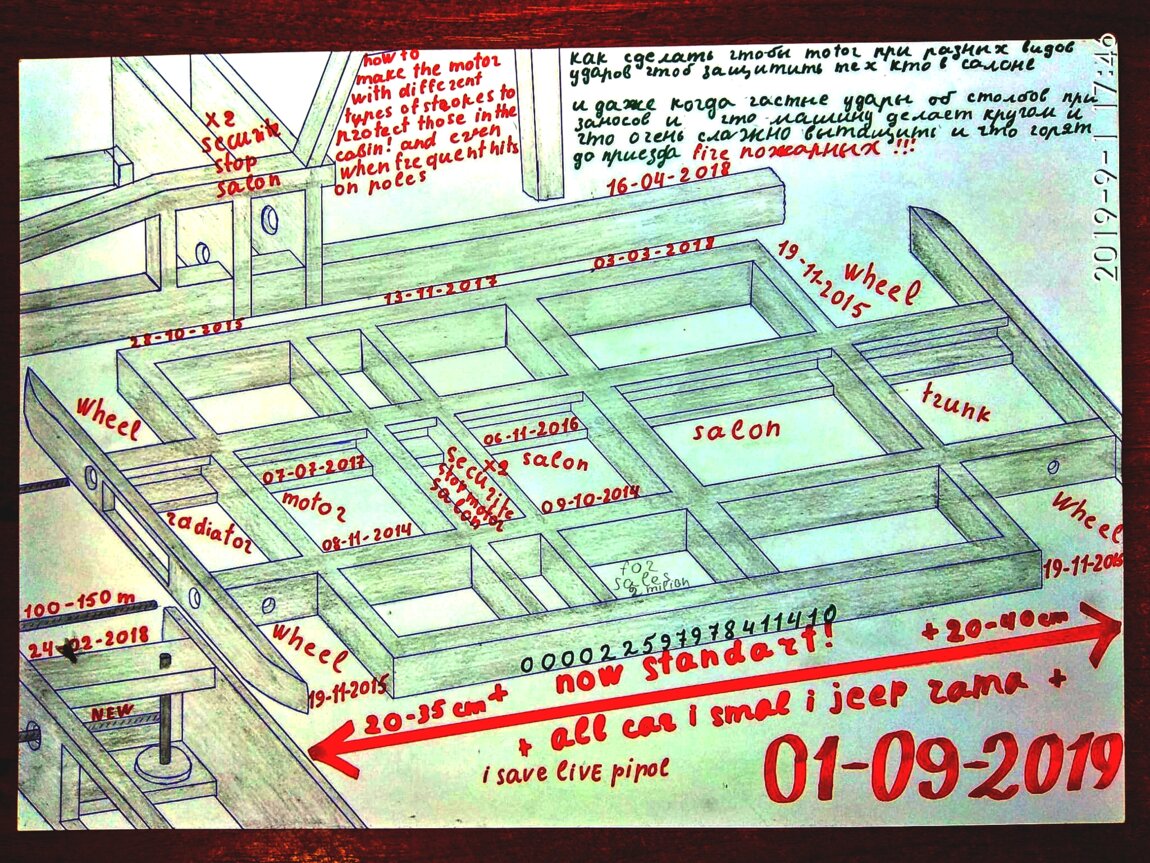 how to
make the motor
with different
types of strokes to
protect those in the
cabin! and even
when frequent hits
on poles
как сделать чтобы motor при разных видов
ударов чтоб защитить тех кто в салоне
и даже когда частые удары об столбов при
заносов и что машину делает кругом и
что очень сложно вытащить и что горят
до приезда fire пожарных !!!
2019-9-1 17:46
x2
securite
stop
salon
16-04-2018
03-03-2018
13-11-2017
28-10-2015
19-11-2015
wheel
wheel
trunk
salon
06-11-2016
salon
09-10-2014
x2
securite
stop motor
salon
07-07-2017
motor
08-11-2014
radiator
wheel
19-11-2015
for
sales
milion
100-150 m
24-02-2018
NEW
wheel
19-11-2015
000022597978411410
now standart!
+20-40cm
20-35 cm+
+ all car i smal i jeep rama +
i save live pipol
01-09-2019